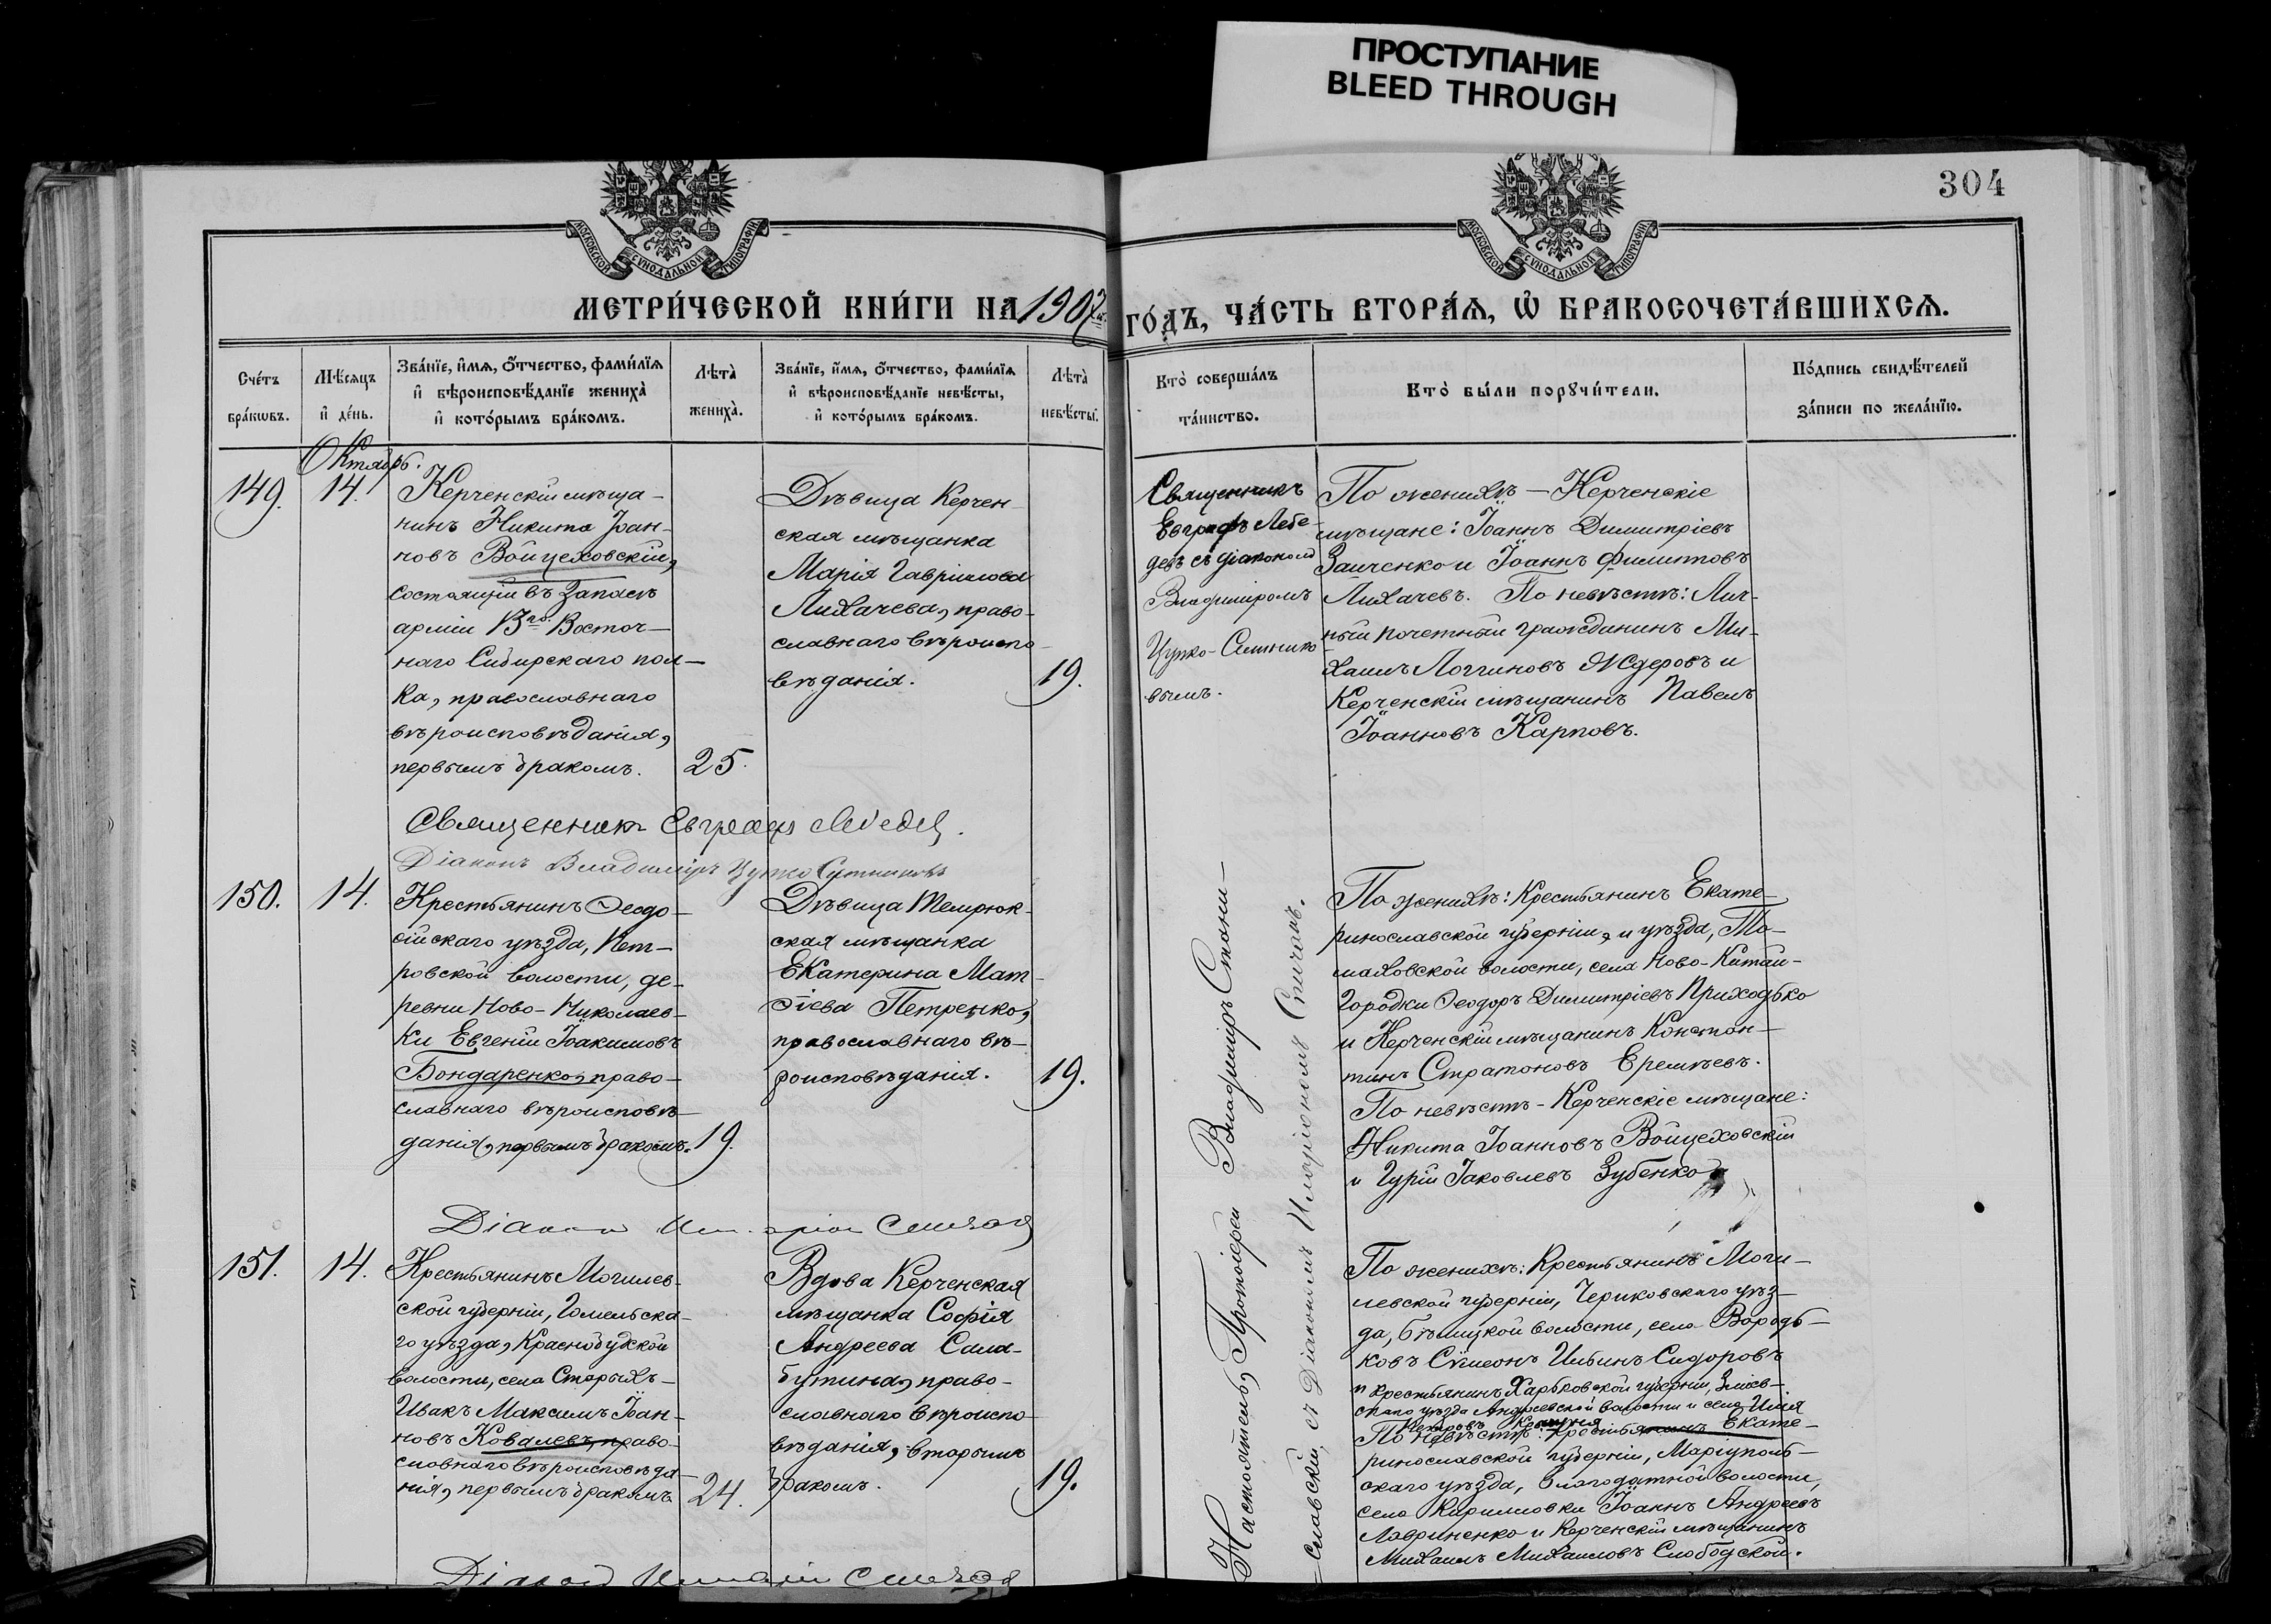 ПРОСТУПАНИЕ
BLEED THROUGH
304
МОСКОВСКОЙ СѴНОДАЛЬНОЙ ТИПОГРАФІИ
МОСКОВСКОЙ СѴНОДАЛЬНОЙ ТИПОГРАФІИ
МЕТРИ́ЧЕСКОЙ КНИ́ГИ НА 1907 ГО́ДЪ, ЧА́СТЬ ВТОРА́Ѧ, Ѡ҆ БРАКОСОЧЕТА́ВШИХСѦ.
Сче́тъ бра́кѡвъ.
Мѣ́сѧцъ и҆ де́нь.
Зва́нїе, и҆́мѧ, ѻ҆́тчество, фами́лїѧ
и҆ вѣроисповѣ́данїе жениха̀
и҆ кото́рымъ бра́комъ.
Лѣта̀ жениха̀.
Зва́нїе, и҆́мѧ, ѻ҆́тчество, фами́лїѧ
и҆ вѣроисповѣ́данїе невѣ́сты,
и҆ кото́рымъ бра́комъ.
Лѣта̀ невѣ́сты.
Кто̀ соверша́лъ
та́инство.
Кто̀ бы́ли порꙋчи́тели.
По́дпись свидѣ́телей
за́писи по жела́нїю.
Октябрь.
149.
14.
Керченскій мѣща-
нинъ Никита Іоан-
новъ Войцеховскій,
состоящій въ запасѣ
арміи 13го Восточ-
наго Сибирскаго пол-
ка, православнаго
вѣроисповѣданія,
первымъ бракомъ.
25.
Дѣвица Керчен-
ская мѣщанка
Марія Гавріилова
Лихачева, право-
славнаго вѣроиспо-
вѣданія.
19.
Священникъ
Евграфъ Лебе-
девъ съ діакономъ
Владиміромъ
Цупко-Ситнико-
вымъ.
По женихѣ — Керченскіе
мѣщане: Іоаннъ Димитріевъ
Заиченко и Іоаннъ Филипповъ
Лихачевъ. По невѣстѣ: Лич-
ный почетный гражданинъ Ми-
хаилъ Логгиновъ Ждеровъ и
Керченскій мѣщанинъ Павелъ
Іоанновъ Карповъ.
Священникъ Евграфъ Лебедев.
Діаконъ Владиміръ Цупко Ситниковъ
150.
14.
Крестьянинъ Ѳеодо-
сійскаго уѣзда, Пет-
ровской волости, де-
ревни Ново-Николаев-
ки Евгеній Іоакимовъ
Бондаренко, право-
славнаго вѣроисповѣ-
данія, первымъ бракомъ.
19.
Дѣвица Темрюк-
ская мѣщанка
Екатерина Мат-
ѳіева Петренко,
православнаго вѣ-
роисповѣданія.
19.
Настоятель, Протоіерей Владиміръ Стани-
славскій, съ Діакономъ Иларіономъ Спичакъ.
По женихѣ: Крестьянинъ Екате-
ринославской губерніи, и уѣзда, То-
маховской волости, села Ново-Китай-
городки Ѳеодоръ Димитріевъ Приходько
и Керченскій мѣщанинъ Констан-
тинъ Стратоновъ Еремѣевъ.
По невѣстѣ - Керченскіе мѣщане:
Никита Іоанновъ Войцеховскій
и Гурій Іаковлевъ Зубенко
Діакон
151.
14.
Крестьянинъ Могилев-
ской губерніи, Гомельска-
го уѣзда, Краснобудской
волости, села Старыхъ-
Ивакъ Максимъ Іоан-
новъ Ковалевъ, право-
славнаго вѣроисповѣда-
нія, первымъ бракомъ
24.
Вдова Керченская
мѣщанка Софія
Андреева Сала-
бутина, право-
славнаго вѣроиспо-
вѣданія, вторымъ
бракомъ.
19.
По женихѣ: Крестьянинъ Моги-
левской губерніи, Чериковскаго уѣз-
да, волости, села
Сѵмеонъ Ильинъ Сидоровъ
и крестьянинъ Харьковской губерніи, Зміев-
скаго уѣзда Андреевской волости и села Илія
По невѣстѣ: крестьянинъ Екате-
ринославской губерніи, Маріуполь-
скаго уѣзда, Благодатной волости,
села Кирилловки Іоаннъ Андреевъ
Лавриненко и Керченскій мѣщанинъ
Михаилъ Михаиловъ Слободской.
Діакон